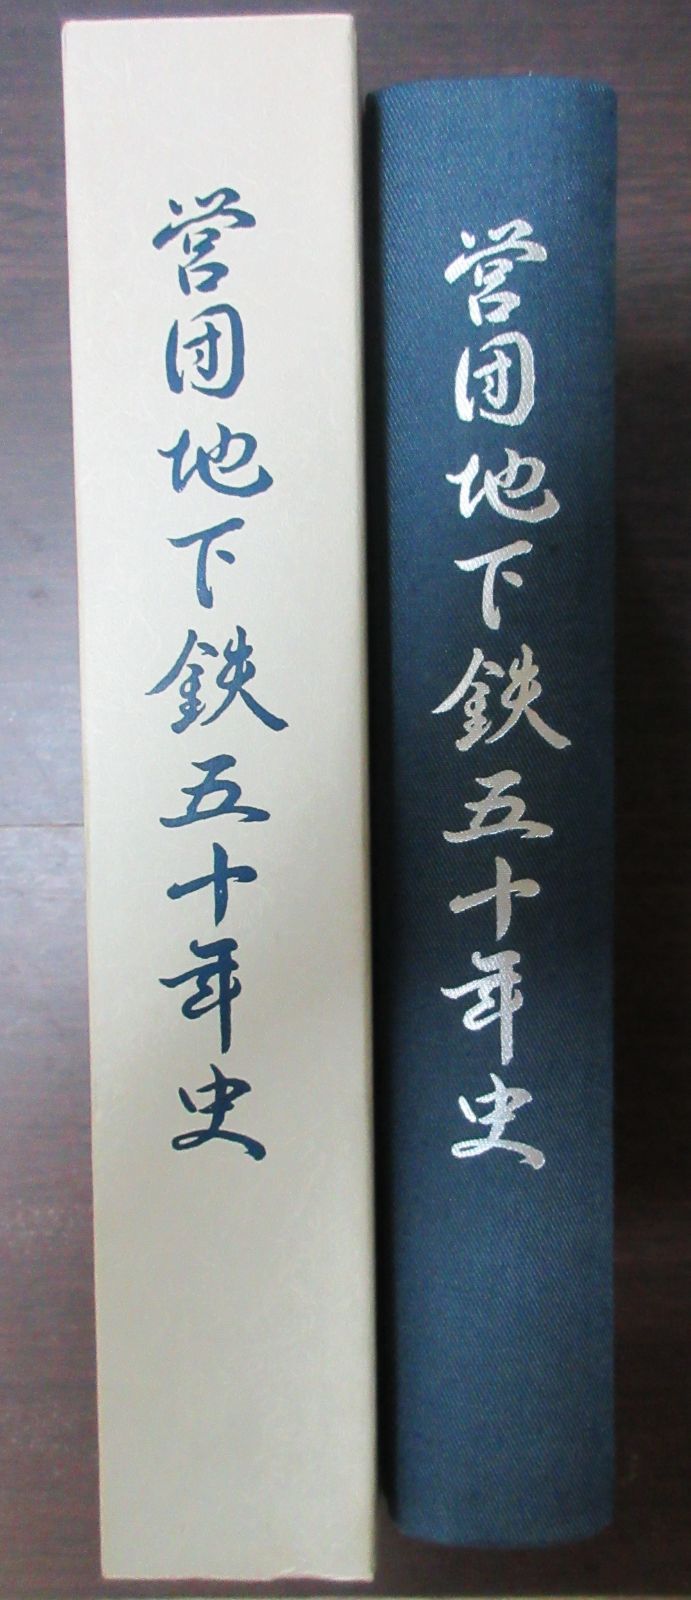 営団地下鉄五十年史
営団地下鉄五十年史